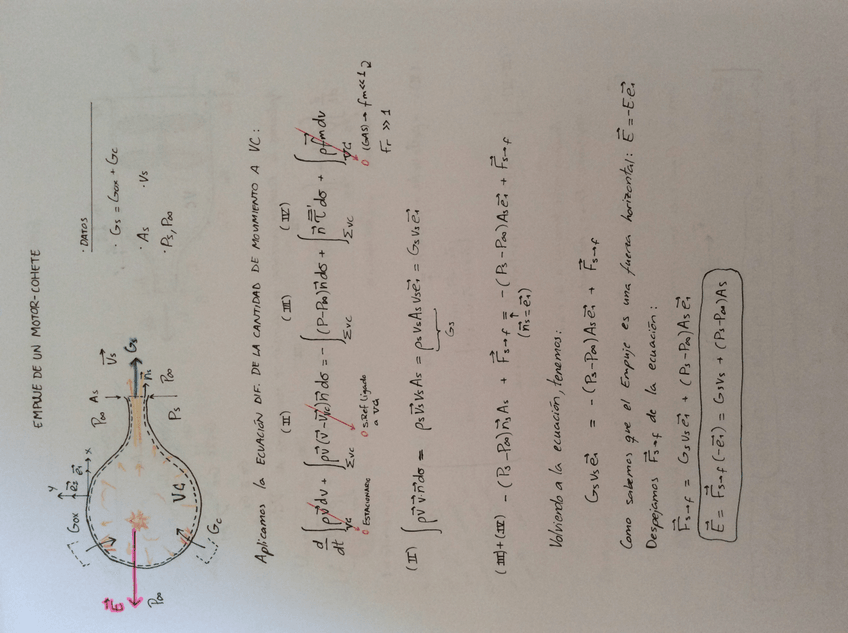 EMPUJE DE UN MOTOR-COHETE
· DATOS
· Gs = Gox + Gc
· As · Vs
· Ps, P∞
y
x
e⃗₂ e⃗₁
Gox
Gc
VC
E⃗
P∞
P∞ As
V⃗s
Gs
n⃗s
Ps P∞
Aplicamos la ECUACIÓN DIF. DE LA CANTIDAD DE MOVIMIENTO A VC:
(II) (III) (IV)
d/dt ∫VC ρv⃗ dv + ∫ΣVC ρv⃗(v⃗-v⃗vc)n⃗dσ = -∫ΣVC (P-P∞)n⃗dσ + ∫ΣVC n⃗ τ̿' dσ + ∫VC ρf⃗m dv
0 ESTACIONARIO
0 S.Ref ligado a VC
0 (GAS) → fm<<1
Fr >> 1
(II) ∫ρv⃗ v⃗ n⃗dσ = ρs v⃗s Vs As = ρs Vs As Vs e⃗₁ = Gs Vs e⃗₁
Gs
(III)+(IV) - (Ps-P∞) n⃗s As + F⃗s→f = - (Ps-P∞) As e⃗₁ + F⃗s→f
(n⃗s = e⃗₁)
Volviendo a la ecuación, tenemos:
Gs Vs e⃗₁ = - (Ps-P∞) As e⃗₁ + F⃗s→f
Como sabemos que el Empuje es una fuerza horizontal: E⃗ = -E e⃗₁
Despejamos F⃗s→f de la ecuación:
F⃗s→f = Gs Vs e⃗₁ + (Ps-P∞) As e⃗₁
E⃗ = F⃗s→f (-e⃗₁) = Gs Vs + (Ps-P∞) As